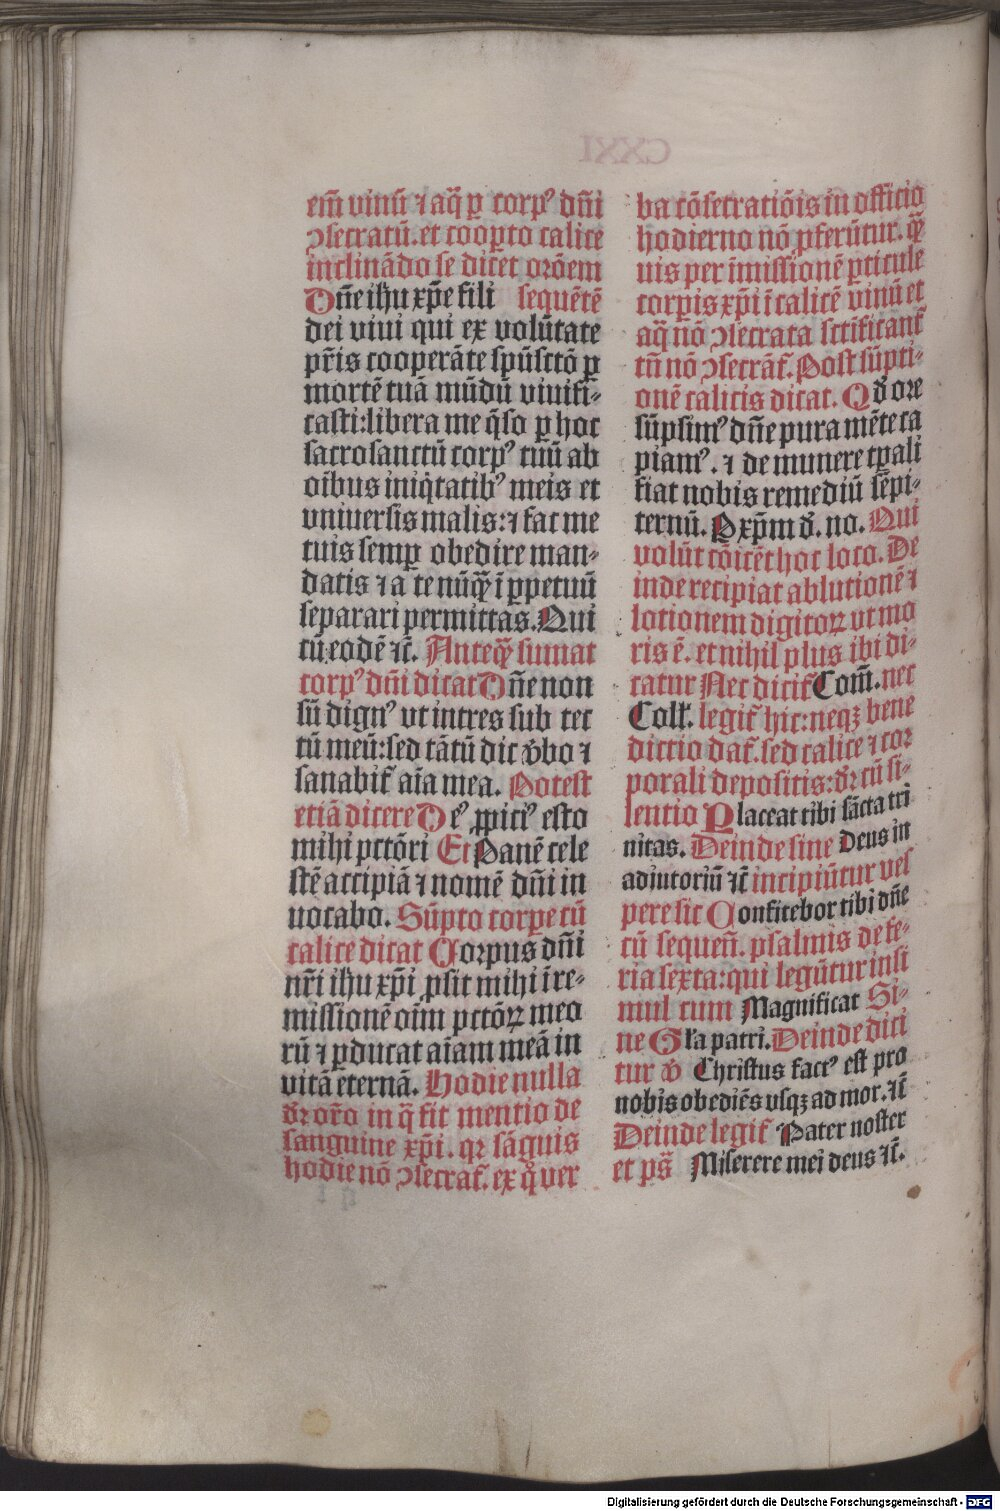 em̄ vinū ⁊ aq̄ ꝑ corpꝰ dn̄i
ↄsecratū. et cooꝑto calice
inclinādo se dicet orōem
Dn̄e ihu xp̄e fili sequētē
dei vivi qui ex volūtate
pr̄is cooperāte spūsctō ꝑ
mortē tuā mūdū vivifi-
casti:libera me q̄so ꝑ hoc
sacrosanctū corpꝰ tuū ab
oībus iniq̇tatibꝰ meis et
vniuersis malis:⁊ fac me
tuis semꝑ obedire man-
datis ⁊ a te nūq̄ƺ ī ꝑpetuū
separari permittas. Qui
cū eodē ⁊c̄. Anteq̄ƺ sumat
corpꝰ dn̄i dicat Dn̄e non
sū dignꝰ vt intres sub tec
tū meū:sed tātū dic v̄bo ⁊
sanabit᷑ aīa mea. Potest
etiā dicere Deꝰ ꝓpiciꝰ esto
mihi pctōri Et Panē cele
stē accipiā ⁊ nomē dn̄i in
uocabo. Sūpto corpe cū
calice dicat Corpus dn̄i
nr̄i ihu xp̄i ꝓsit mihi ī re-
missionē oīm pctōꝝ meo
rū ⁊ ꝑducat aīam meā in
vitā eternā. Hodie nulla
dr̄ orō in q̄ fit mentio de
sanguine xp̄i. qꝛ sāguis
hodie nō ↄsecrat᷑. ex q̊ ver
ba cōsecratiōis in officio
hodierno nō ꝓferūtur. q̄ƺ
uis per īmissionē ꝑticule
corꝑis xp̄i ī calicē vinū et
aq̄ nō ↄsecrata sctīficant᷑
tn̄ nō ↄsecrāt᷑. Post sūpti-
onē calicis dicat. Qd̄ ore
sūpsimꝰ dn̄e pura mēte ca
piamꝰ. ⁊ de munere tꝑali
fiat nobis remediū sēpi-
ternū. Ꝑ xp̄m d̄. no. Qui
volūt cōicēt hoc loco. De
inde recipiat ablutionē ⁊
lotionem digitoꝝ vt mo
ris ē. et nihil plus ibi di-
catur Nec dicit᷑ Com̄. nec
Coll̄. legit᷑ hic:neqꝫ bene
dictio dat᷑. sed calice ⁊ cor
porali depositis:dr̄ cū si-
lentio Placeat tibi sācta tri
nitas. Deinde sine Deus in
adiutoriū ⁊c̄ incipiūtur ves
pere sic Confitebor tibi dn̄e
cū sequen̄. psalmis de fe-
ria sexta:qui legūtur insi
mul cum Magnificat Si-
ne Gl̄a patri. Deinde dici
tur v̄ Christus factꝰ est pro
nobis obediēs vsqꝫ ad mor. ⁊c̄
Deinde legit᷑ Pater noster
et ps̄ Miserere mei deus ⁊c̄.
Digitalisierung gefördert durch die Deutsche Forschungsgemeinschaft - DFG